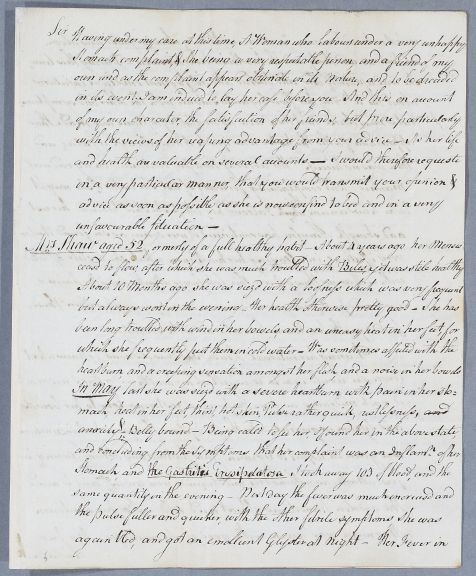 Sir
Having under my care at this time, A Woman who labours under a very unhappy
Stomach complaint, & She being a very respectable person, and a friend of my
own and as the complaint appears obstinate in its nature, and to be decided
in its event, I am induced to lay her case before you. And this on account
of my own character, the satisfaction of her friends, but more particularly
with the views of her reaping advantage from your advice — As her life
and health are valuable on several accounts — I would therefore request
in a very particular manner that you would transmit your opinion &
advice as soon as possible as she is now confind to bed and in a very
unfavourable situation —
Mrs Shaw aged 52, formerly of a full healthy habit — About 4 years ago her Menses
ceasd to flow, after which she was much troubled with Biles, yet was still healthy
About 10 Months ago she was seizd with a looseness which was very frequent
but always worst in the evening — Her health otherwise pretty good — She has
been long troubled with wind in her bowels and an uneasy heat in her feet, for
which she frequently put them in cold water — Was sometimes affected with the
heartburn and a creeping sensation amongst her flesh and a noise in her bowels
In May last she was seizd with a severe heartburn with pain in her sto-
mach heat in her feet thirst hot skin, Pulse rather quick, restlessness, and
& Belly bound — Being called to see her I found her in the above state
and concluding from the symptoms that her complaint was an Inflamn of her
Stomach and the Gastritis Erysipelatosa I took away of blood, and the
same quantity in the evening — Next day the fever was much increased and
the pulse fuller and quicker, with the other febrile symptoms She was
again bled, and got an emollient Glyster at night — Her Fever in